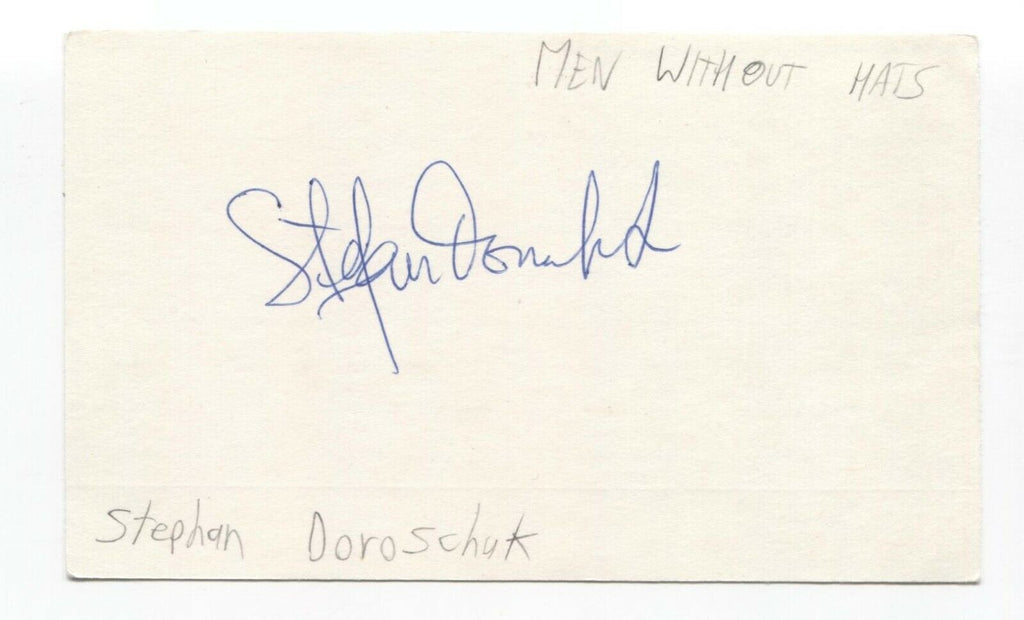 MEN WITHOUT HATS
Stefan Doroschuk
Stephan Doroschuk